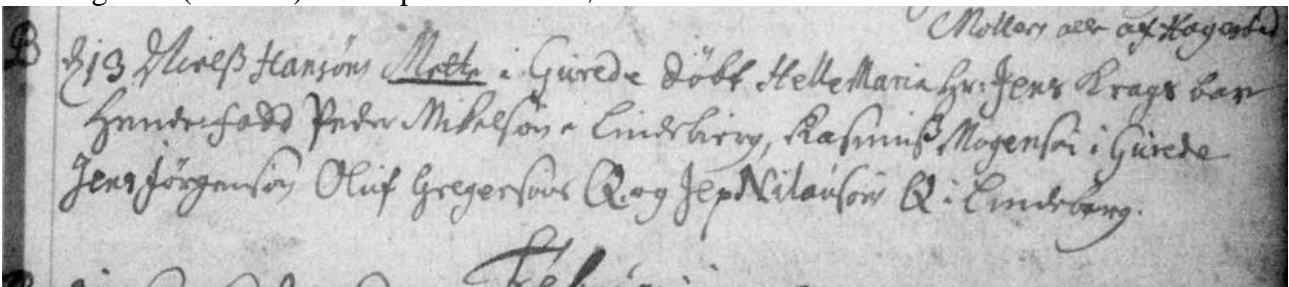 Møllers alle af Hagested
B
d 13 Nielß Hansøns Mette i Gurede døbt Helle Maria Hr: Jens Krags bar
Hende. fadd Peder Mikelsøn i Lindebierg, Rasmuß Mogensøn i Gurede
Jens Jørgensøn Oluf Gregersøns Q. og Jep Nilausøns Q i Lindeberg.